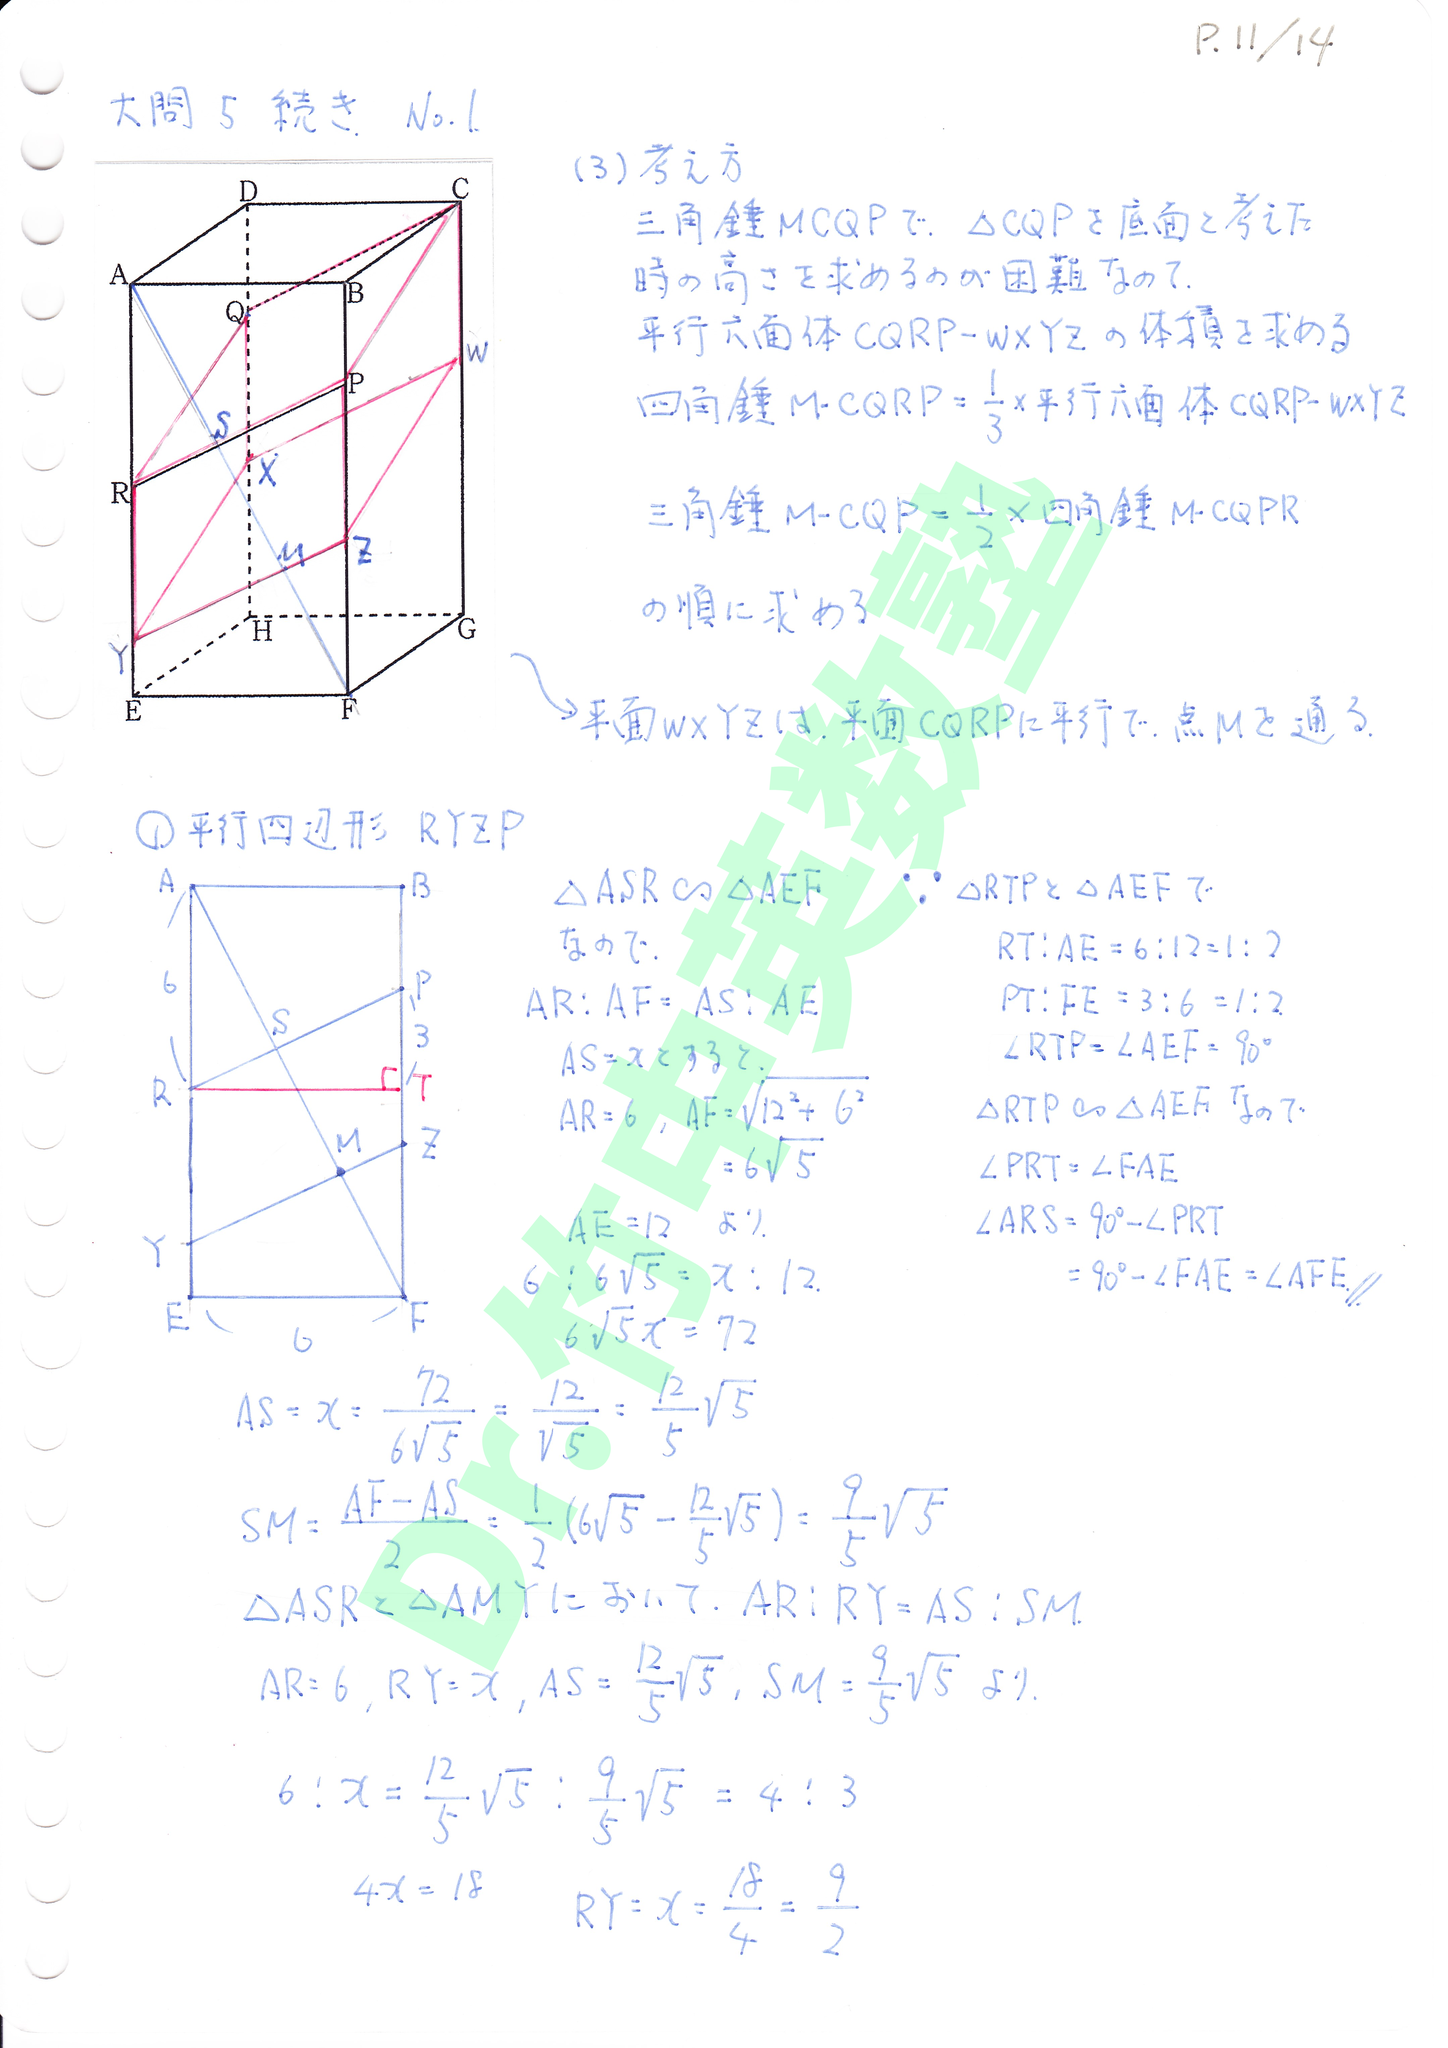 P.11/14
大問5 続き No.1
D
C
A
B
Q
W
P
S
R
X
M
Z
H
G
Y
E
F
(3) 考え方
三角錘MCQPで、△CQPを底面と考えた
時の高さを求めるのが困難なので、
平行六面体CQRP-WXYZの体積を求める
四角錘 M-CQRP = 1/3 × 平行六面体 CQRP-WXYZ
三角錘 M-CQP = 1/2 × 四角錘 M-CQPR
の順に求める
平面WXYZは、平面CQRPに平行で、点Mを通る。
① 平行四辺形 RYZP
A
B
6
P
S
3
R
T
M
Z
Y
E
F
6
△ASR∽△AEF
なので、
AR:AF = AS:AE
AS=xとすると、
AR=6, AF=√(12²+6²)
=6√5
AE=12 より、
6:6√5 = x:12
6√5x = 72
∵ △RTPと△AEFで
RT:AE = 6:12 = 1:2
PT:FE = 3:6 = 1:2
∠RTP = ∠AEF = 90°
△RTP∽△AEF なので
∠PRT = ∠FAE
∠ARS = 90°-∠PRT
= 90°-∠FAE = ∠AFE //
AS = x = 72/6√5 = 12/√5 = 12/5 √5
SM = (AF-AS)/2 = 1/2 (6√5 - 12/5 √5) = 9/5 √5
△ASRと△AMYにおいて、AR:RY = AS:SM
AR=6, RY=x, AS = 12/5 √5, SM = 9/5 √5 より、
6:x = 12/5 √5 : 9/5 √5 = 4:3
4x = 18 RY = x = 18/4 = 9/2
Dr.竹中英数塾